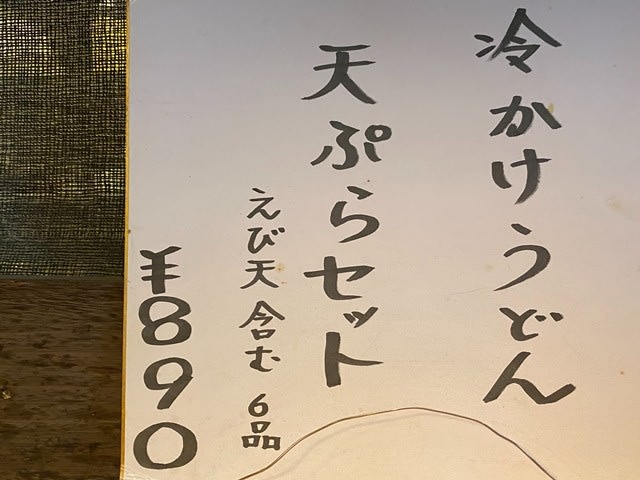 冷かけうどん
天ぷらセット
えび天含む 6品
¥890